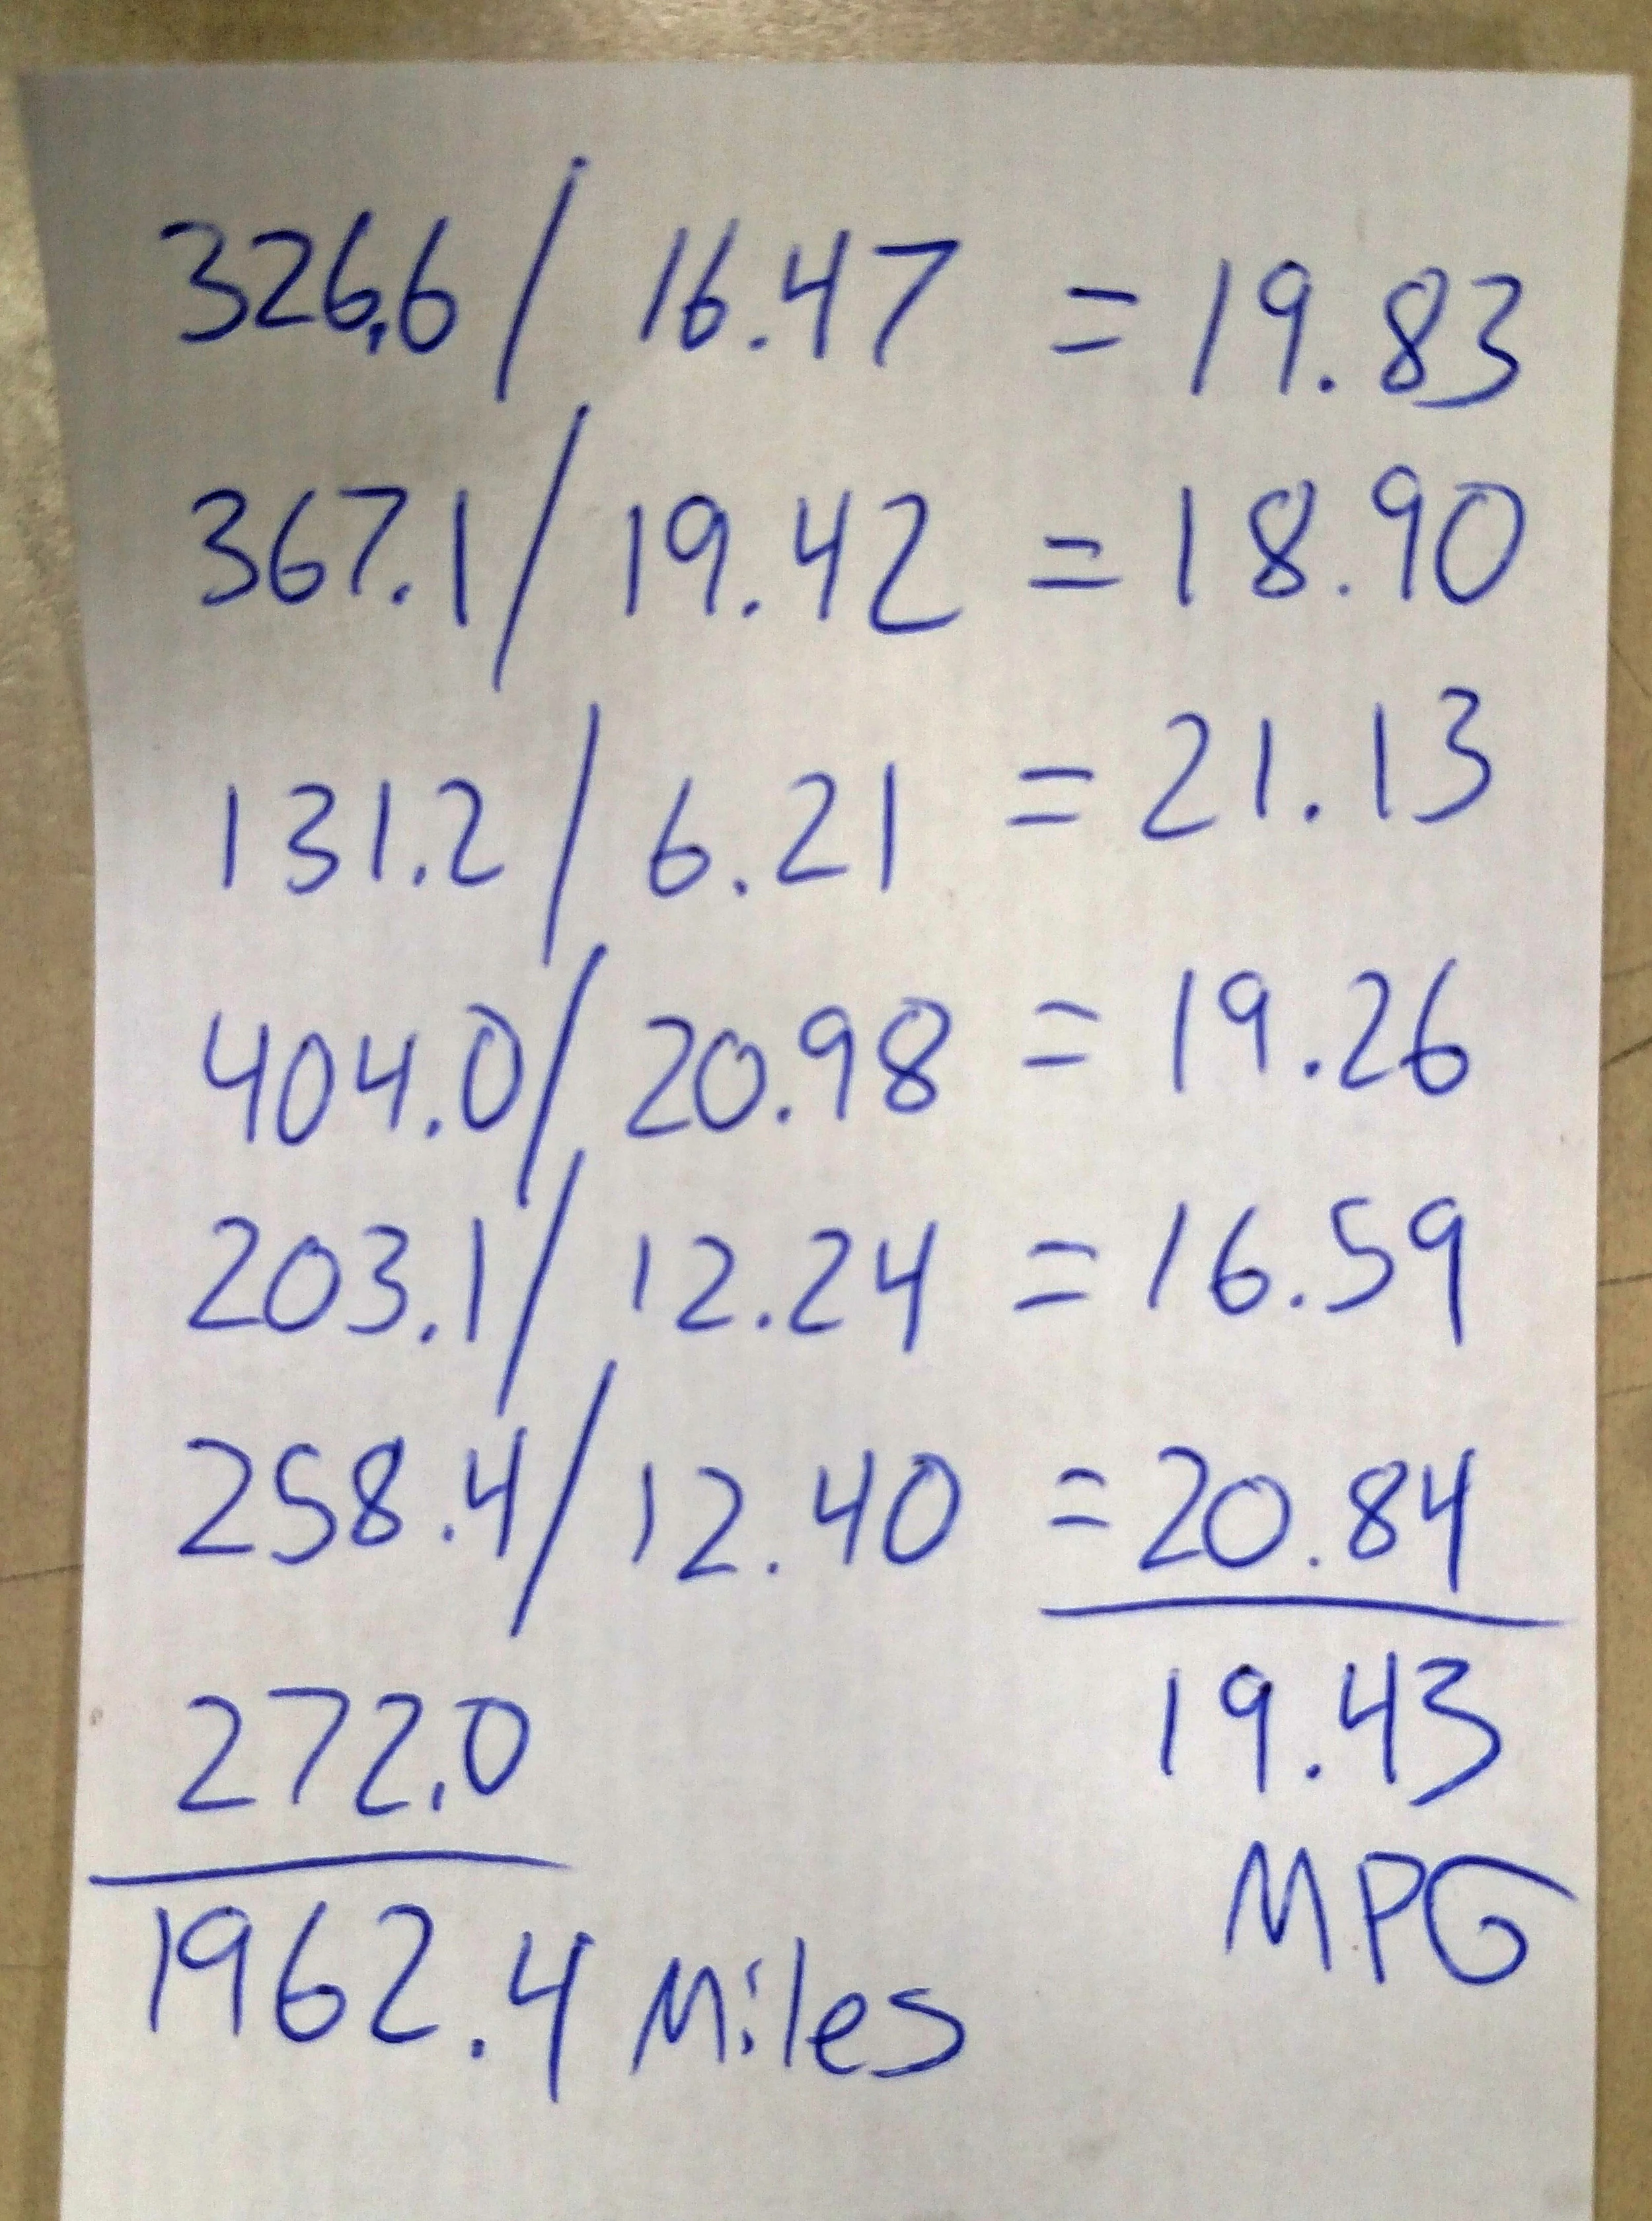 326.6 / 16.47 = 19.83
367.1 / 19.42 = 18.90
131.2 / 6.21 = 21.13
404.0 / 20.98 = 19.26
203.1 / 12.24 = 16.59
258.4 / 12.40 = 20.84
272.0 19.43
MPG
1962.4 Miles